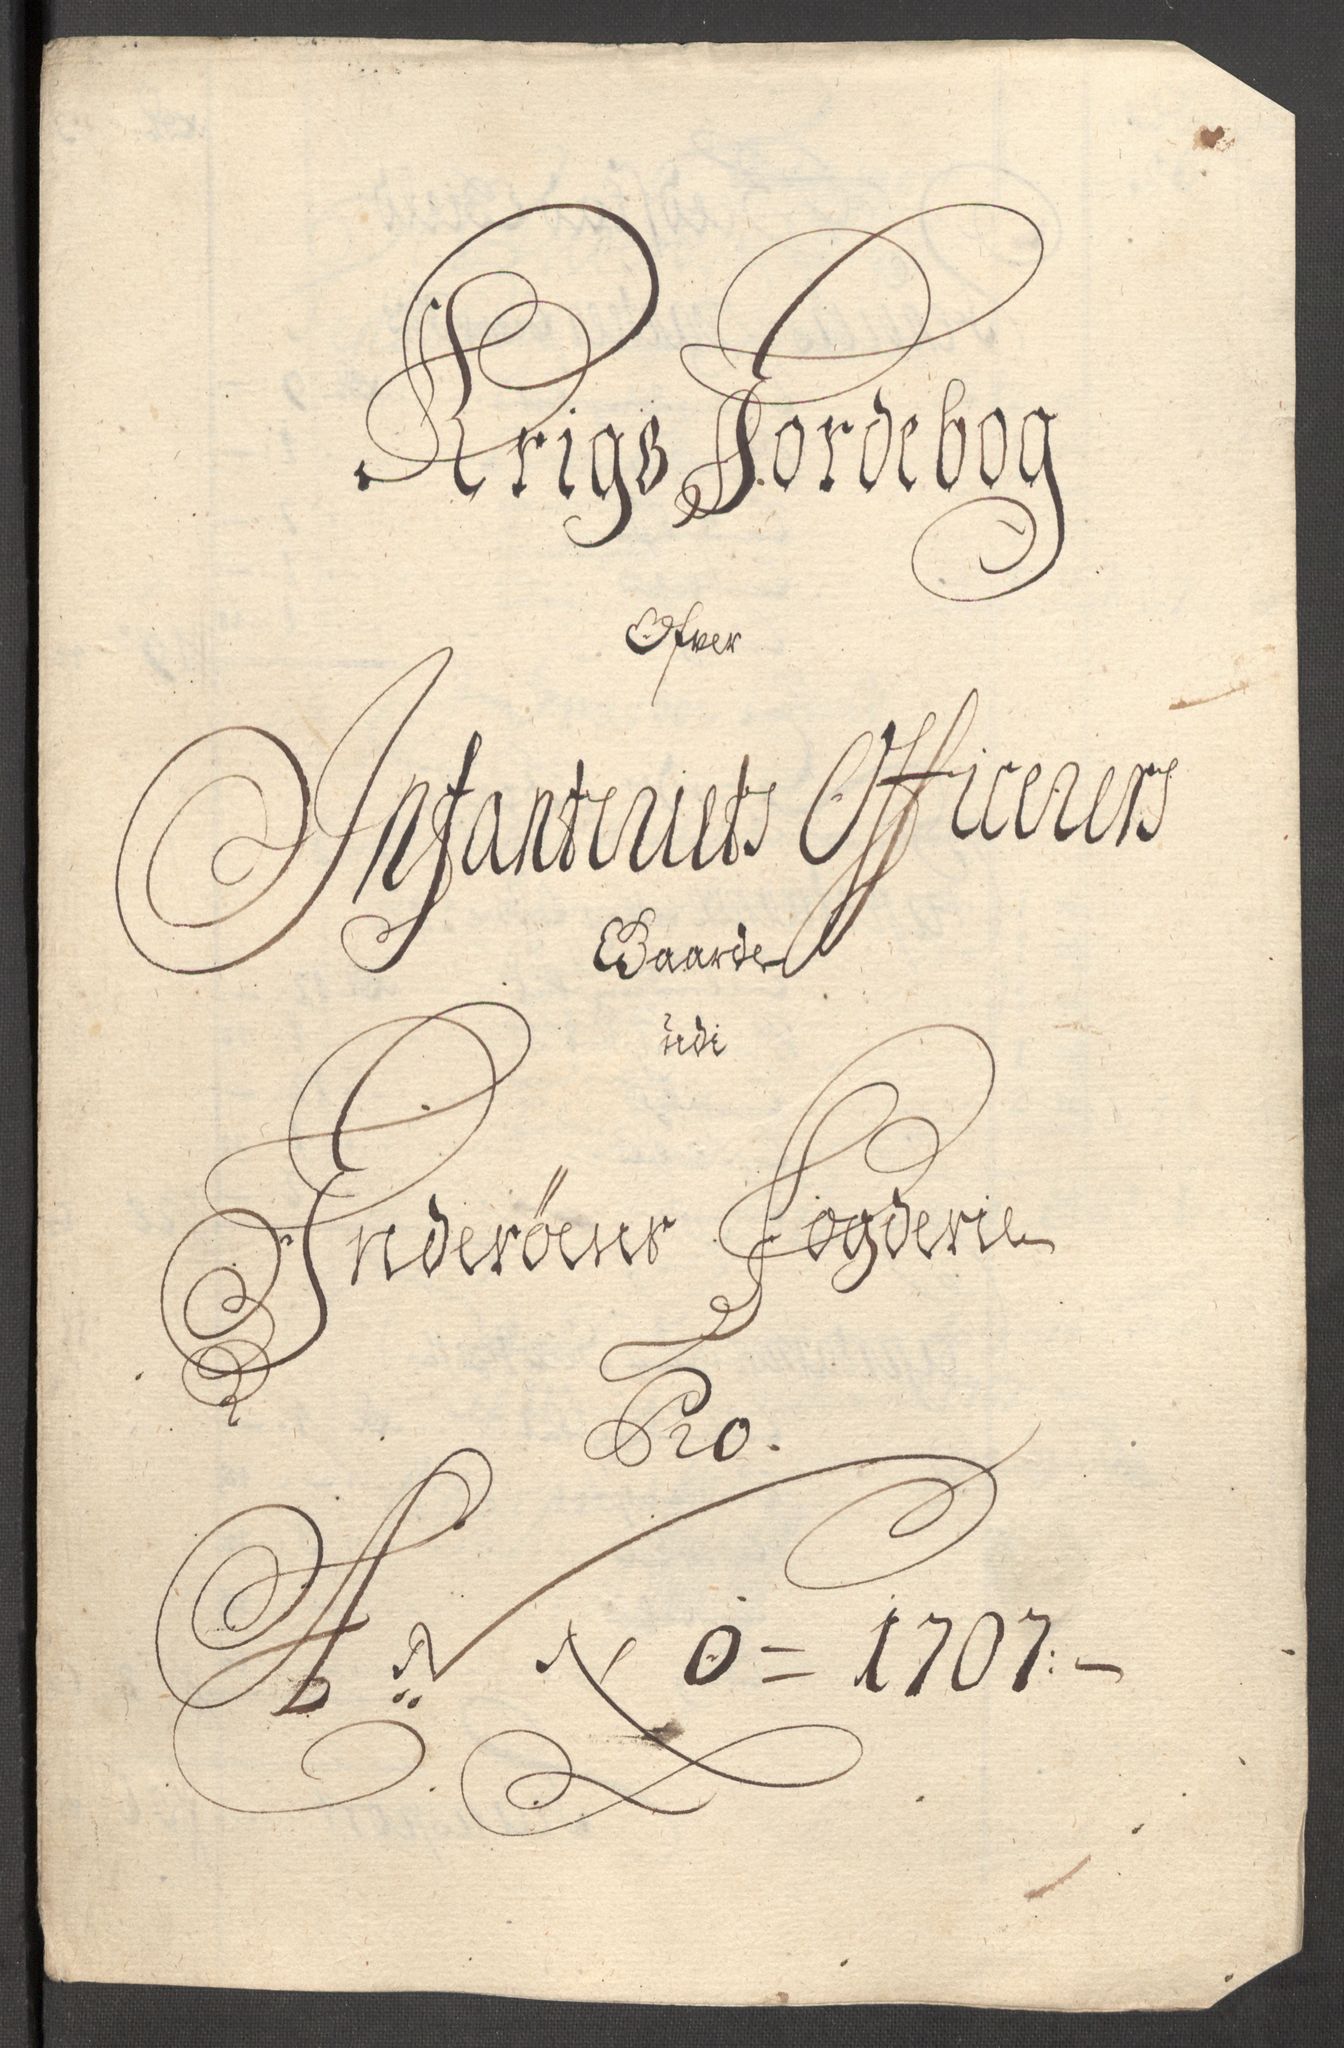 Krigs Jordebog
Ofver
Infanteriets Officerers
Gaarde
udi
Inderöens Fogderie
Pro.
Anno = 1707:-